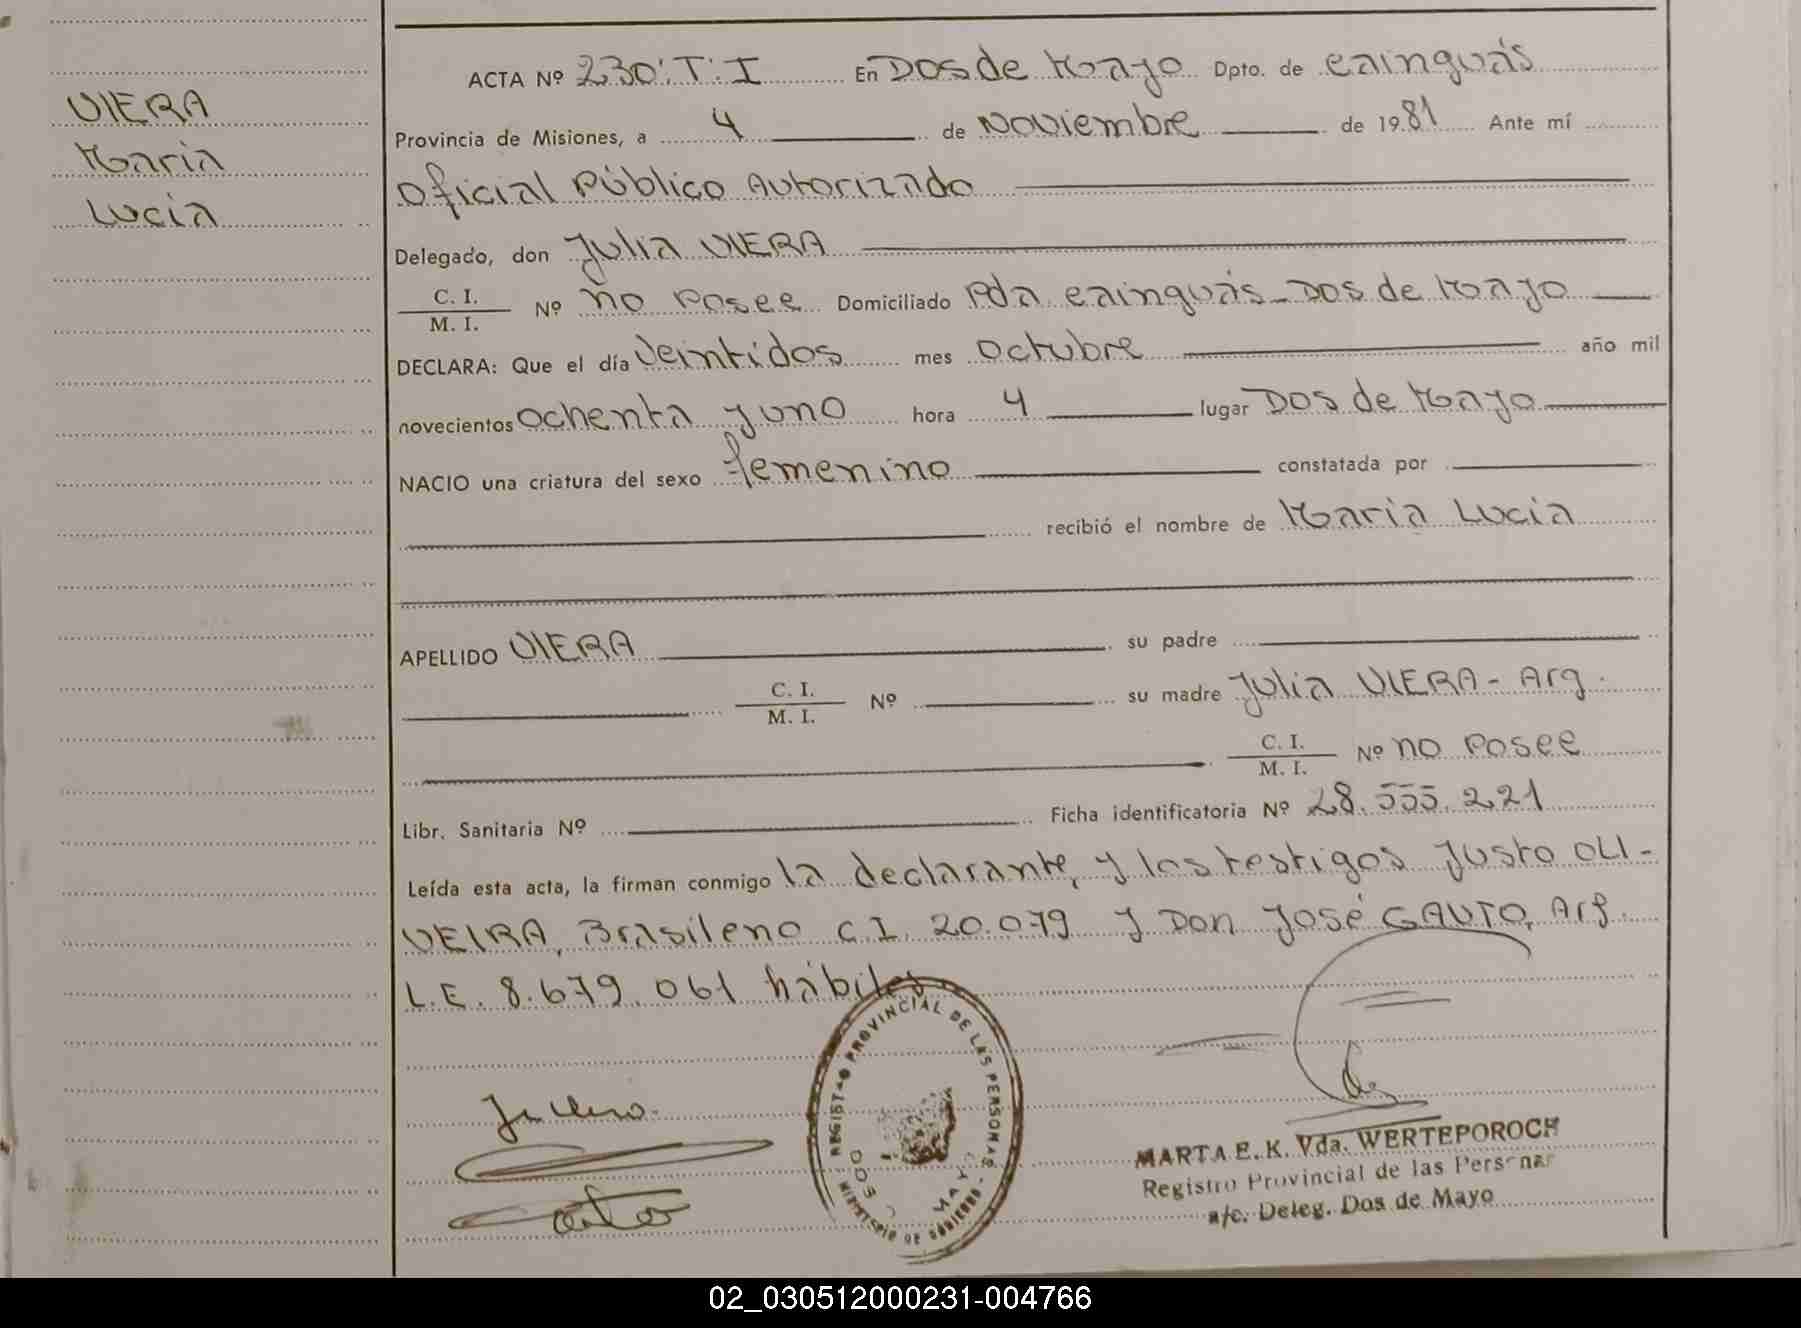 VIERA
Maria
Lucia
ACTA Nº 230:T:I En Dos de Mayo Dpto. de cainguás
Provincia de Misiones, a 4 de Noviembre de 1981 Ante mí
Oficial Público Autorizado
Delegado, don Julia VIERA
C. I.
M. I. Nº no posee Domiciliado Pda cainguás - Dos de Mayo
DECLARA: Que el día Veintidos mes octubre año mil
novecientos ochenta y uno hora 4 lugar Dos de Mayo
NACIO una criatura del sexo femenino constatada por
recibió el nombre de Maria Lucia
APELLIDO VIERA su padre
C. I.
M. I. Nº su madre Julia VIERA - Arg.
C. I.
M. I. Nº no posee
Libr. Sanitaria Nº Ficha identificatoria Nº 28.555.221
Leída esta acta, la firman conmigo la declarante, y los testigos Justo OLI-
VEIRA, Brasileno C I 20.079 y Don José GAUTO, Arg.
L.E. 8.679.061 hábiles
REGISTRO PROVINCIAL DE LAS PERSONAS
DOS MAYO
MINISTERIO DE GOBIERNO
MARTA E. K. Vda. WERTEPOROCH
Registro Provincial de las Personas
a/c. Deleg. Dos de Mayo
02_030512000231-004766